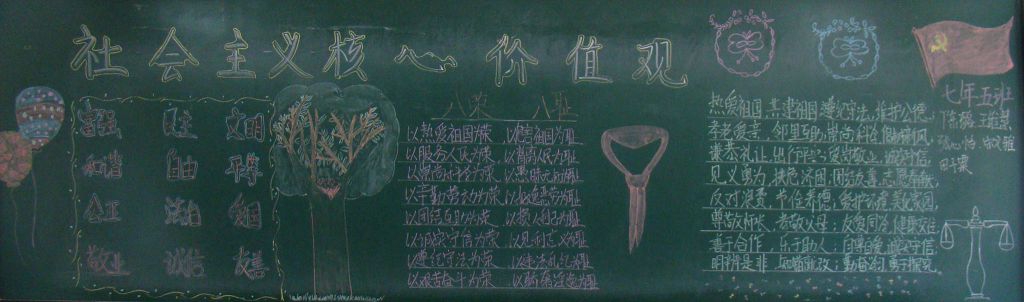 社会主义核心价值观
富强 民主 文明
和谐 自由 平等
公正 法治 爱国
敬业 诚信 友善
八荣 八耻
以热爱祖国为荣 以危害祖国为耻
以服务人民为荣 以背离人民为耻
以崇尚科学为荣 以愚昧无知为耻
以辛勤劳动为荣 以好逸恶劳为耻
以团结互助为荣 以损人利己为耻
以诚实守信为荣 以见利忘义为耻
以遵纪守法为荣 以违法乱纪为耻
以艰苦奋斗为荣 以骄奢淫逸为耻
热爱祖国,共建祖国,遵纪守法,维护公德,
孝老爱亲,邻里互助,崇尚科学,
谦恭礼让,出行,爱岗敬业,诚实守信,
见义勇为,扶危济困,团结友善,志愿奉献,
反对浪费,
尊敬师长,孝敬父母;友爱同学,
善于合作,乐于助人;自尊自爱,诚实守信,
明辨是非,知错就改;勤奋学习,勇于探究。
七年五班